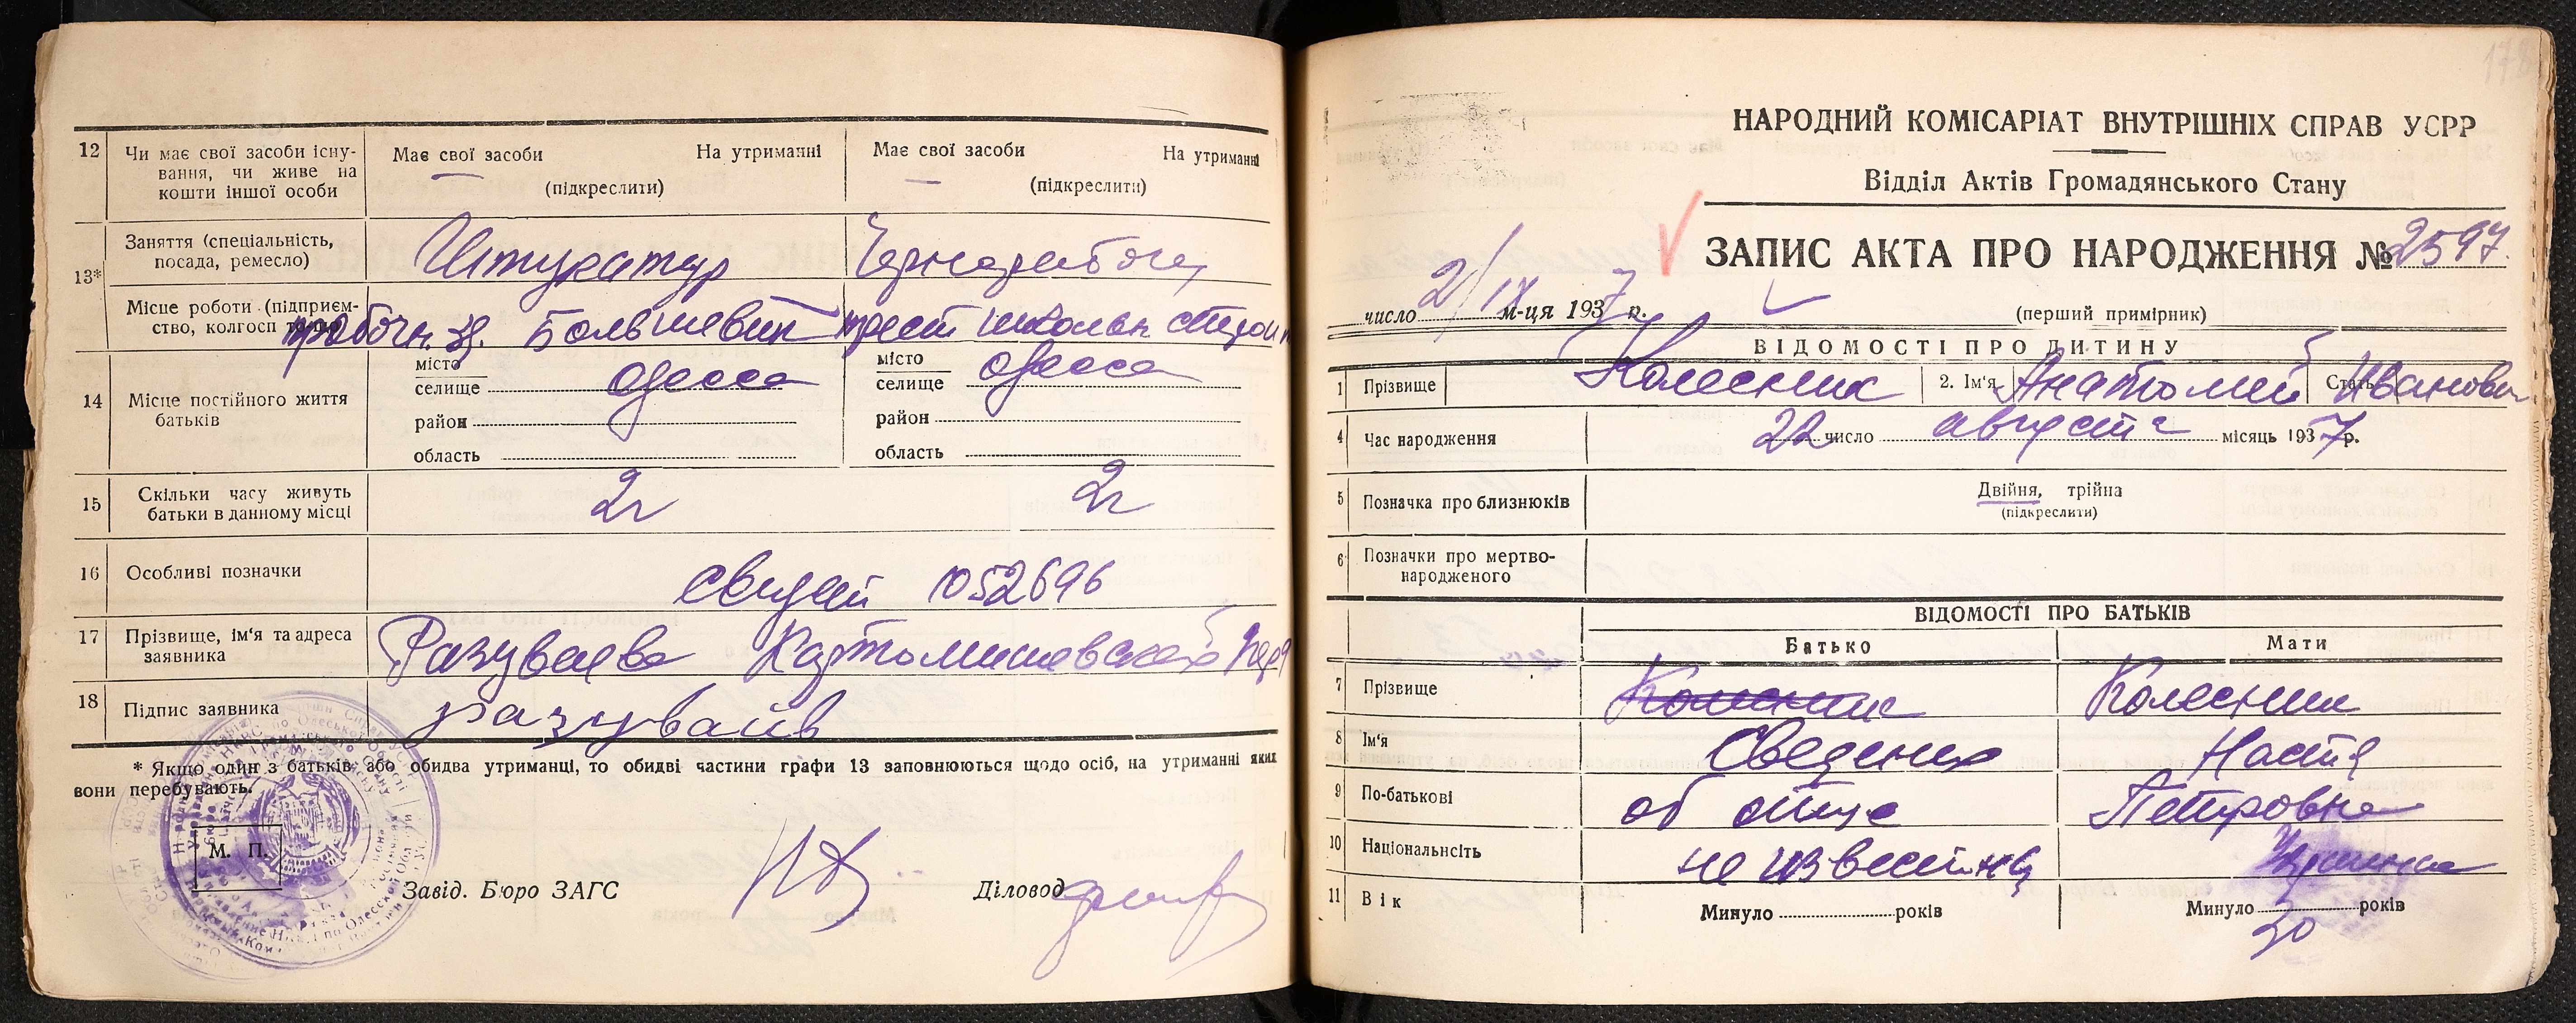 12 Чи має свої засоби існу-
вання, чи живе на
кошти іншої особи
Має свої засоби На утриманні
(підкреслити)
Має свої засоби На утриманні
(підкреслити)
13* Заняття (спеціальність,
посада, ремесло)
Штукатур
Чернорабочая
Місце роботи (підприєм-
ство, колгосп
Большевик
трест школьн
14 Місце постійного життя
батьків
місто
селище Одесса
район
область
місто
селище Одесса
район
область
15 Скільки часу живуть
батьки в данному місці
2г
2г
16 Особливі позначки
свидет 1052696
17 Прізвище, ім'я та адреса
заявника
Разуваева Картамишевская
18 Підпис заявника
* Якщо один з батьків або обидва утриманці, то обидві частини графи 13 заповнюються щодо осіб, на утриманні яких
вони перебувають.
М. П.
Завід. Бюро ЗАГС
Діловод
178
НАРОДНИЙ КОМІСАРІАТ ВНУТРІШНІХ СПРАВ УСРР
Відділ Актів Громадянського Стану
ЗАПИС АКТА ПРО НАРОДЖЕННЯ № 2597.
число 2/IX м-ця 1937 р.
(перший примірник)
ВІДОМОСТІ ПРО ДИТИНУ
1 Прізвище Колесник 2. Ім'я Анатолий Стать Иванови
4 Час народження 22 число августа місяць 1937 р.
5 Позначка про близнюків
Двійня, трійна
(підкреслити)
6 Позначки про мертво-
народженого
ВІДОМОСТІ ПРО БАТЬКІВ
Батько Мати
7 Прізвище Колесник Колесник
8 Ім'я Сведения Настя
9 По-батькові об отце Петровна
10 Національнсіть не известны Украинка
11 Вік Минуло років Минуло років
30